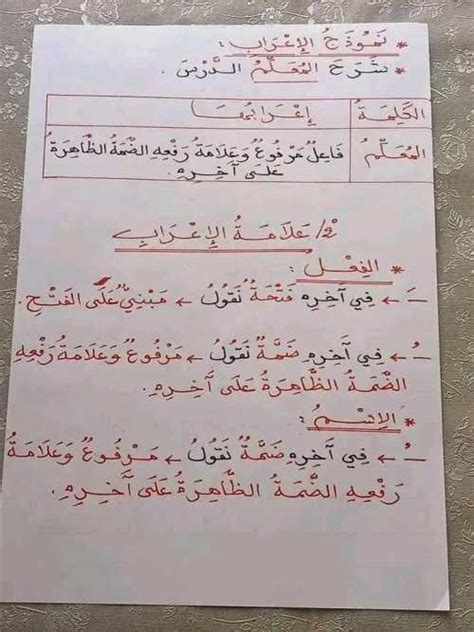 * نَمُوذَجُ الإِعْرَابِ :
* شَرَحَ المُعَلِّمُ الدَّرْسَ .
الكَلِمَةُ إِعْرَابُهَا
المُعَلِّمُ فَاعِلٌ مَرْفُوعٌ وَعَلَامَةُ رَفْعِهِ الضَّمَّةُ الظَّاهِرَةُ
عَلَى آخِرِهِ.
2/ عَلَامَةُ الإِعْرَابِ
* الفِعْل :
ـَ ← فِي آخِرِهِ فَتْحَةٌ نَقُولُ ← مَبْنِيٌّ عَلَى الفَتْحِ.
ـُ ← فِي آخِرِهِ ضَمَّةٌ نَقُولُ ← مَرْفُوعٌ وَعَلَامَةُ رَفْعِهِ
الضَّمَةُ الظَّاهِرَةُ عَلَى آخِرِهِ.
* الإِسْمُ :
ـُ ← فِي آخِرِهِ ضَمَّةٌ نَقُولُ ← مَرْفُوعٌ وَعَلَامَةُ
رَفْعِهِ الضَّمَةُ الظَّاهِرَةُ عَلَى آخِرِهِ.